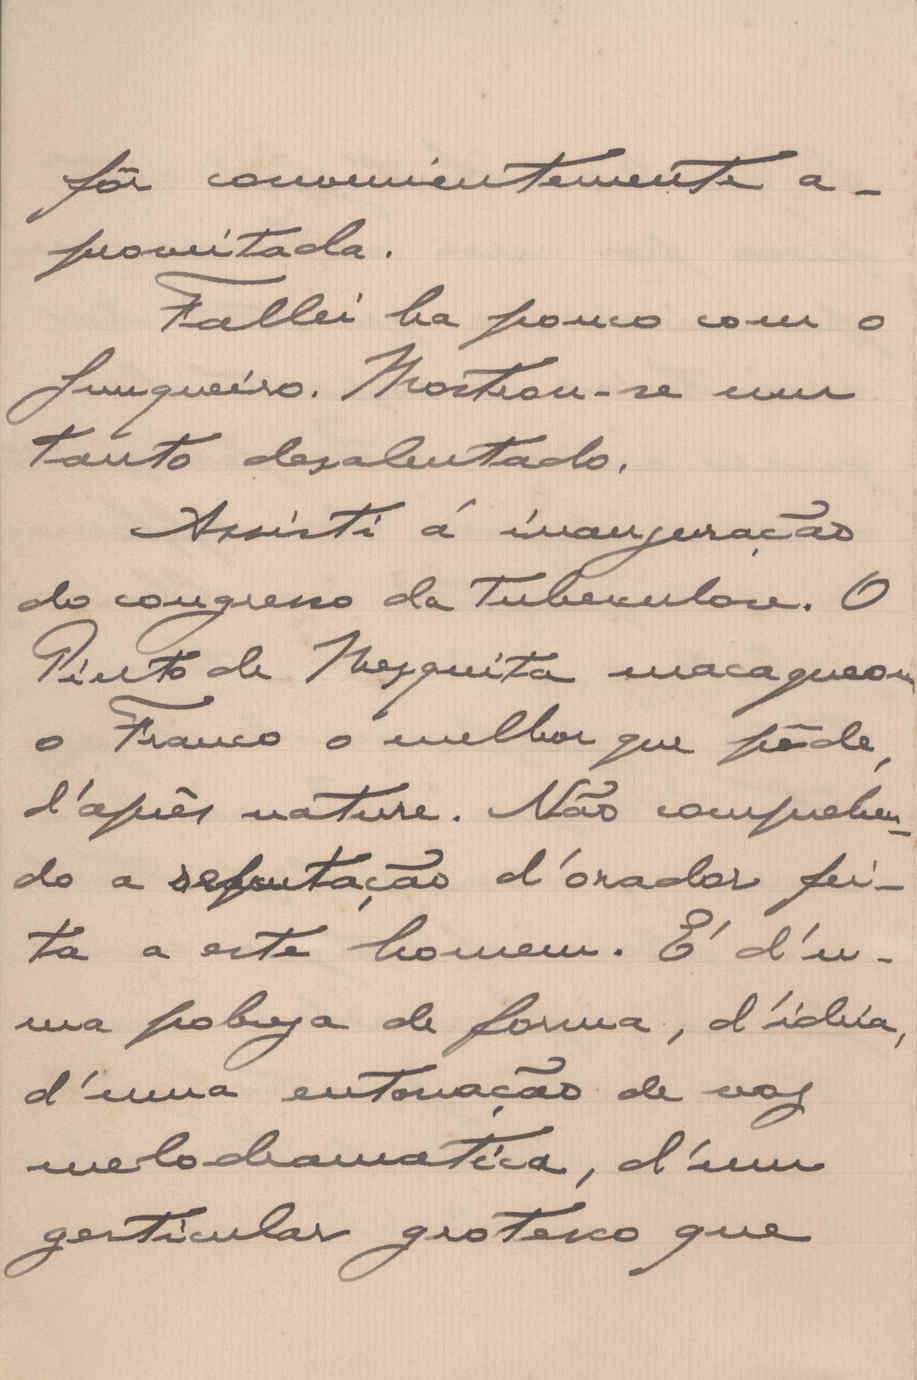 fôr convenientemente a-
proveitada.
Fallei ha pouco com o
Junqueiro. Mostrou-se um
tanto desalentado.
Assisti á inauguração
do congresso da Tuberculose. O
Pinto de Mesquita macaqueou
o Franco o melhor que pôde,
d'aprês nature. Não comprehen-
do a reputação d'orador fei-
ta a este homem. É d'u-
ma pobreza de forma, d'ideia,
d'uma entonação de voz
melodramatica, d'um
gesticular grotesco que